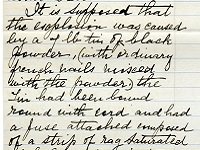 It is supposed that
the explosion was caused
by a 4 lb tin of black
powder, (with ordinary
french nails mixed
with the powder) the
tin had been bound
round with cord and had
a fuse attached composed
of a strip of rag saturated